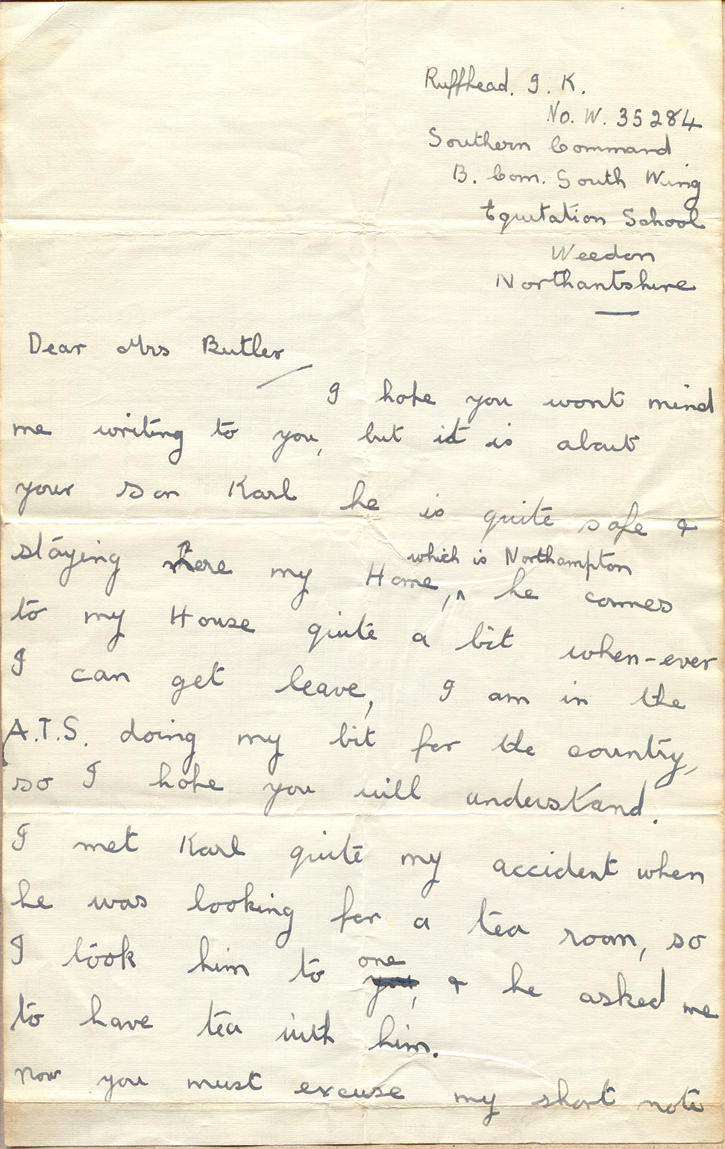 Ruffhead. I. K.
No. W. 35284
Southern Command
B. Com. South Wing
Equitation School
Weedon
Northantshire
Dear Mrs Butler
I hope you wont mind
me writing to you, but it is about
your son Karl he is quite safe &
staying here my Home, which is Northampton he comes
to my House quite a bit when-ever
I can get leave, I am in the
A.T.S. doing my bit for the country,
so I hope you will understand.
I met Karl quite my accident when
he was looking for a tea room, so
I took him to one, & he asked me
to have tea with him.
now you must excuse my short note